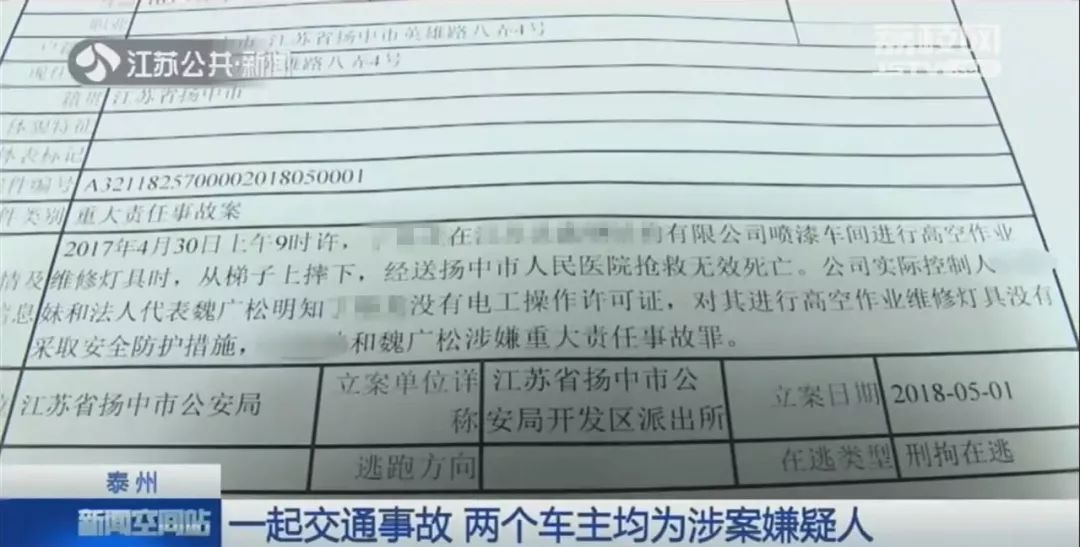 职业
江苏省扬中市英雄路八弄4号
江苏公共·新闻
荔枝网
JSTV.COM
雄路八弄4号
籍贯 江苏省扬中市
体貌特征
体表标记
件编号 A3211825700002018050001
件类别 重大责任事故案
2017年4月30日上午9时许， 在 有限公司喷漆车间进行高空作业
情及 维修灯具时，从梯子上摔下，经送扬中市人民医院抢救无效死亡。公司实际控制人
信息 妹和法人代表魏广松明知 没有电工操作许可证，对其进行高空作业维修灯具没有
采取安全防护措施， 和魏广松涉嫌重大责任事故罪。
位 江苏省扬中市公安局 立案单位详称 江苏省扬中市公安局开发区派出所 立案日期 2018-05-01
逃跑方向 在逃类型 刑拘在逃
泰州
新闻空间站
一起交通事故 两个车主均为涉案嫌疑人